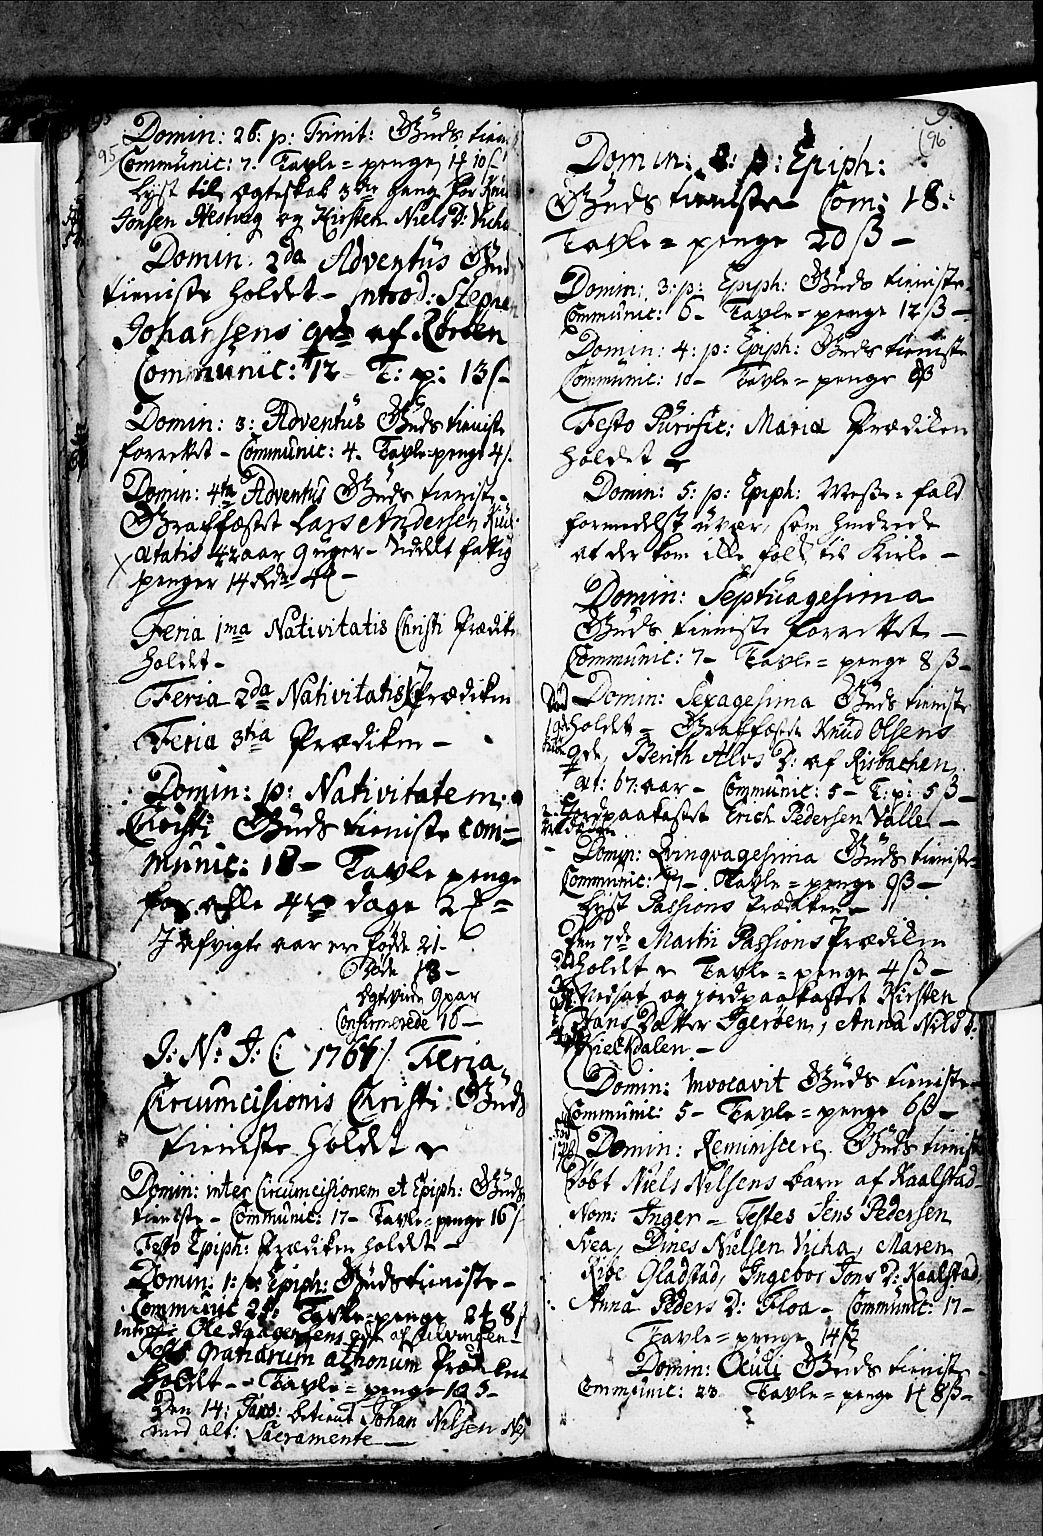 95
Domin: 26: p: Trinit: Guds tien
Communic: 7. Tavle=penge 1# 10ſ
Lyst til Ægteskab 3die gang for Knud
Jonsen Hestvig og Kirsten Niels D: Vicha
Domin. 2da Adventus Guds
tieniste holdet – Introd: Stephen
Johansens qde af Røreen
Communic: 12 – T: p: 13ſ–
Domin: 3: Adventus Guds tieniste
forrettet – Communic: 4. Tavle=penge 4ſ.
Domin: 4ta Adventus Guds tieniste –
Grafffæstet Lars Andersen
ætatis 42 aar 9 uger – Uddelt fattig
penger 14 Rdr
Feria 1ma Nativitatis Christi Prædik
holdet –
Feria 2da Nativitatis Prædiken
Feria 3tia Prædiken –
Domin: p: Nativitatem:
Christi Guds tieniste Com=
munic: 18 – Tavle penge
for alle 4re dage
I afvigte aar ere fødde 21 –
Døde 18 –
Ægteviede 9 par
Confirmerede 16 –
J: N: J: C: 1764/ Feria
Circumcisionis Christi Guds
tieniste holdet
Domin: inter Circumcisionem et Epiph: Guds
tieniste – Communic: 17 – Tavle=penge 16ſ
Festo Epiph: Prædiken holdet –
Domin: 1: p: Epiph: Guds tieniste –
Communic Tavle=penge 2# 8ſ
Introd: Ole Aagagensens qde af
Festo Prædiken
holdet – – Tavle=penge
Den 14: Janv: betient Johan Nilsen
med alt: Sacramente –
96
Domin: 2: p: Epiph:
Guds tieniste Com: 18:
Tavle=penge 20 ß –
Domin: 3: p: Epiph: Guds tieniste –
Communic: 6 – Tavle=penge 12 ß –
Domin: 4: p: Epiph: Guds tieniste
Communic: 10 – Tavle=penge 8ß
Festo Purific: Mariæ Prædiken
holdet
Domin: 5: p: Epiph: Messe=fald
formedelst uvær, som hindrede
at der kom ille folk til Kirke –
Domin: Septuagesima
Guds tieniste forrettet –
Communic: 7 – Tavle=penge 8 ß –
Domin: Sexagesima Guds tieniste
holdet – Grafffæstede Knud Olsens
qde, Berith Alvs D: af Risbachen
æt: 67: aar – Communic: 5 – T: p: 5 ß –
Jordpaakastet Erich Pedersen Valle –
Domin: Qvinqvagesima Guds tieniste –
Communic: 17 – Tavle=penge 9ß –
Lyst Passions Prædiken –
Den 7de Martii Passions Prædiken
holdet Tavle=penge 4 ß –
Nedsat og jordpaakastet Kirsten
Hans Datter Igerøen, Anna Nils D:
Kieldalen –
Domin: Invocavit Guds tieniste –
Communic: 5 – Tavle=penge 6ß –
Domin: Reminiscere Guds tieniste
Døbt Niels Nilsens barn af Kaalstad –
Nom: Inger – Testes Jens Pedersen
Svea, Dines Nielsen Vicha, Maren
Gladstad, Ingebor Jons D: Kaalstad,
Anna Peders D: Floa – Communic: 17 –
Tavle=penge 14 ß
Domin: Oculi Guds tieniste
Communic: 23 Tavle=penge 1# 8ß –